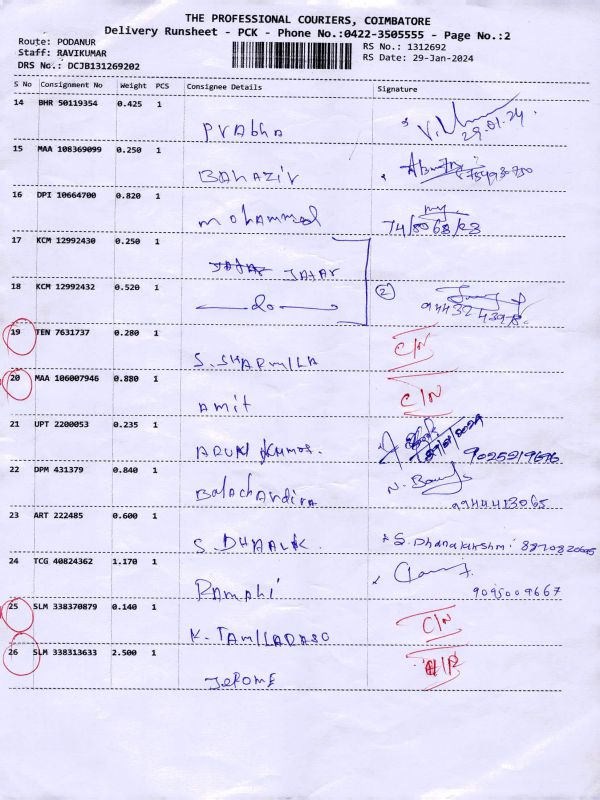 THE PROFESSIONAL COURIERS, COIMBATORE
Delivery Runsheet - PCK - Phone No.:0422-3505555 - Page No.:2
Route: PODANUR
Staff: RAVIKUMAR
DRS No.: DCJB131269202
RS No.: 1312692
RS Date: 29-Jan-2024
S No Consignment No Weight PCS Consignee Details Signature
14 BHR 50119354 0.425 1
Prabha
29.01.24
15 MAA 108369099 0.250 1
BAHAZIR
16 DPI 10664700 0.820 1
mohammed
17 KCM 12992430 0.250 1
JAFAR
18 KCM 12992432 0.520 1
-do-
2
19 TEN 7631737 0.280 1
S. SHARMILA
C/N
20 MAA 106007946 0.880 1
Amit
C/N
21 UPT 2200053 0.235 1
ARUN KUMAR.
22 DPM 431379 0.840 1
Balachandira
9944413065
23 ART 222485 0.600 1
24 TCG 40824362 1.170 1
9095009667
25 SLM 338370879 0.140 1
K. TAMILARASO
C/N
26 SLM 338313633 2.500 1
JEROME